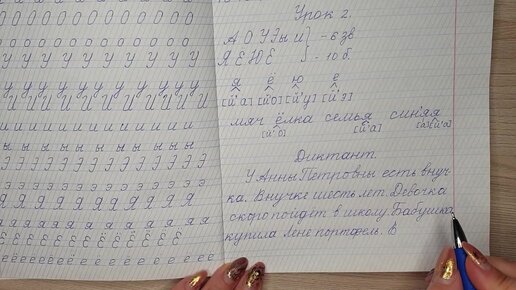 О О О О О О О О О О О
о о о о о о о о о о о
У У У У У У У У У У
у у у у у у у у у у
И И И И И И И И И
и и и и и и и и и и
ы ы ы ы ы ы ы ы ы
Э Э Э Э Э Э Э Э Э
э э э э э э э э э э
Я Я Я Я Я Я Я Я
я я я я я я я я я я
Ё Ё Ё Ё Ё Ё Ё Ё
ё ё ё ё ё ё ё ё ё ё
Урок 2.
А О У Э ы и } - 6 зв
Я Е Ю Ё } - 10 б.
я ё ю е
[й'а] [й'о] [й'у] [й'э]
мяч ёлка семья синяя
[й'о] [й'а] [а] [й'а]
Диктант
У Анны Петровны есть внуч-
ка. Внучке шесть лет. Девочка
скоро пойдёт в школу. Бабушка
купила Лене портфель. В